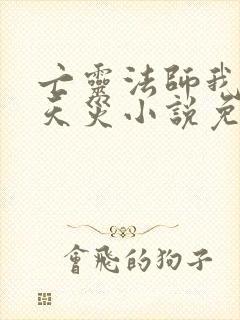 亡靈法師我
天災小說免
會飛的狗子